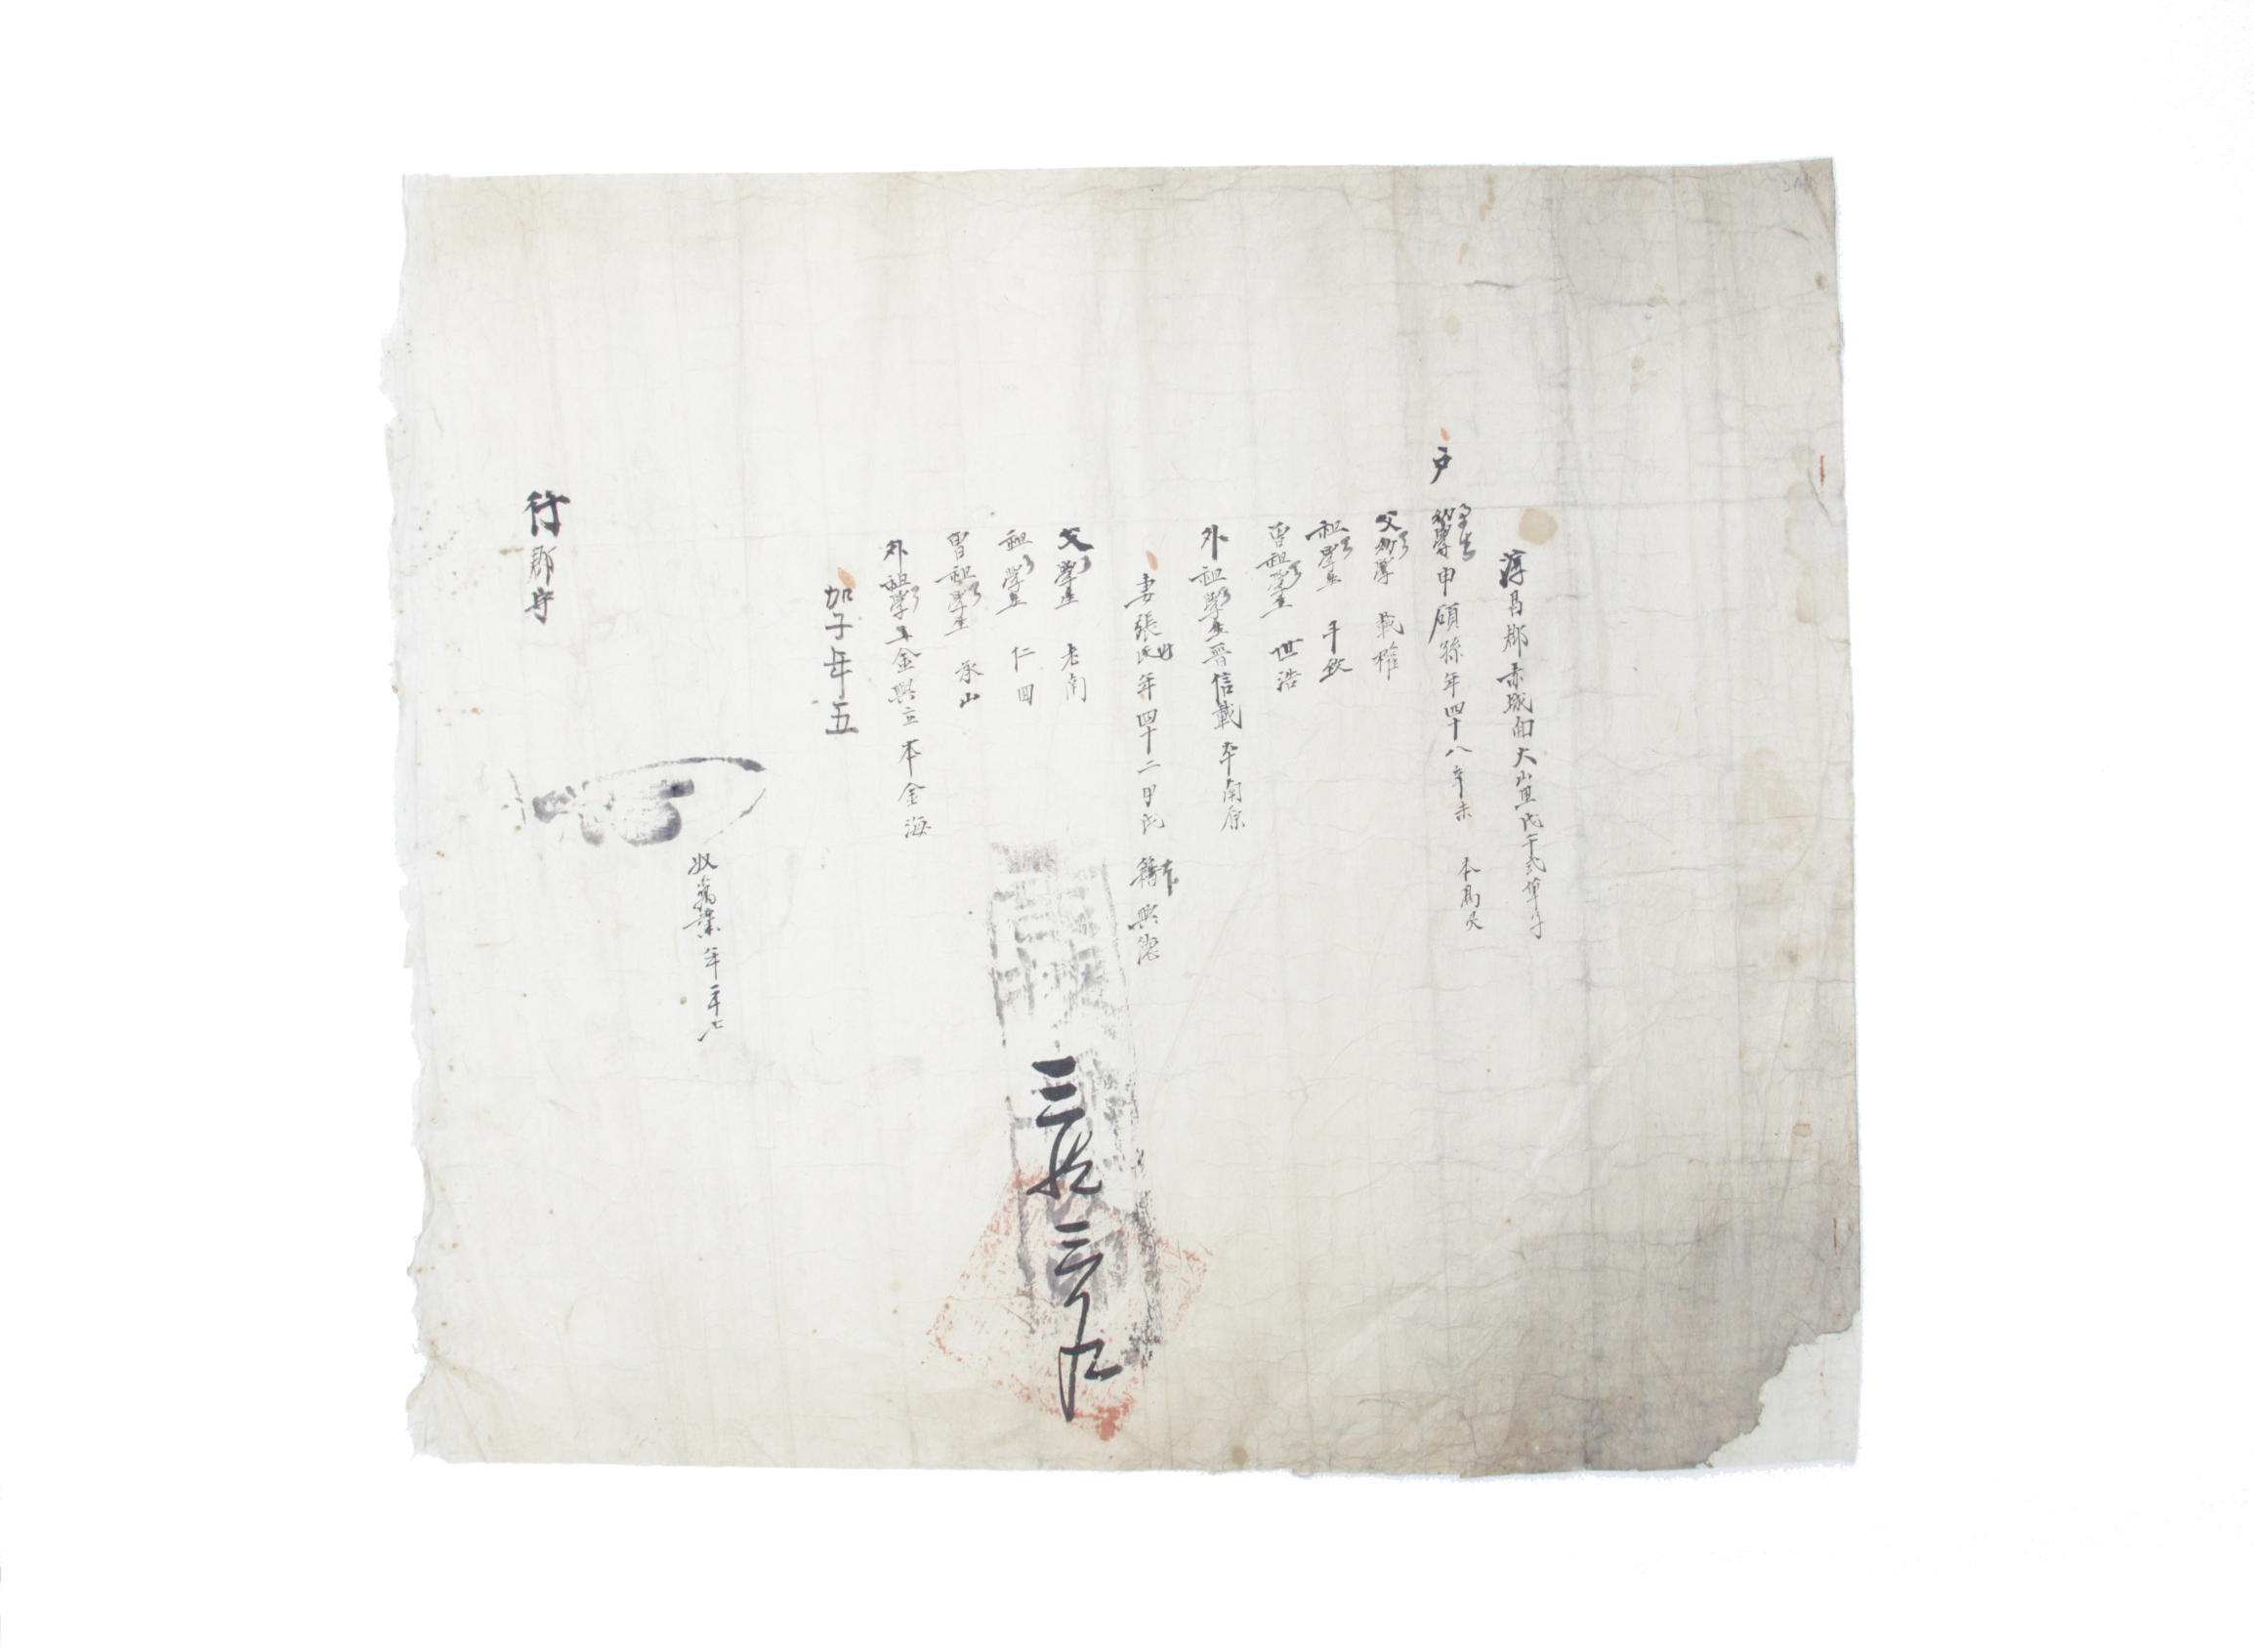 淳昌郡赤城面大山里戊午式單子
戶 幼學申碩縣年四十八辛未 本高灵
父幼學 載權
祖學生 平欽
曾祖學生 世浩
外祖學生晋信載本南原
妻張氏年四十二 籍興德
父學生 老南
祖學生 仁回
曾祖學生 承山
外祖學生金興立本金海
加子年五
奴萬業年
行郡守
三
三
九